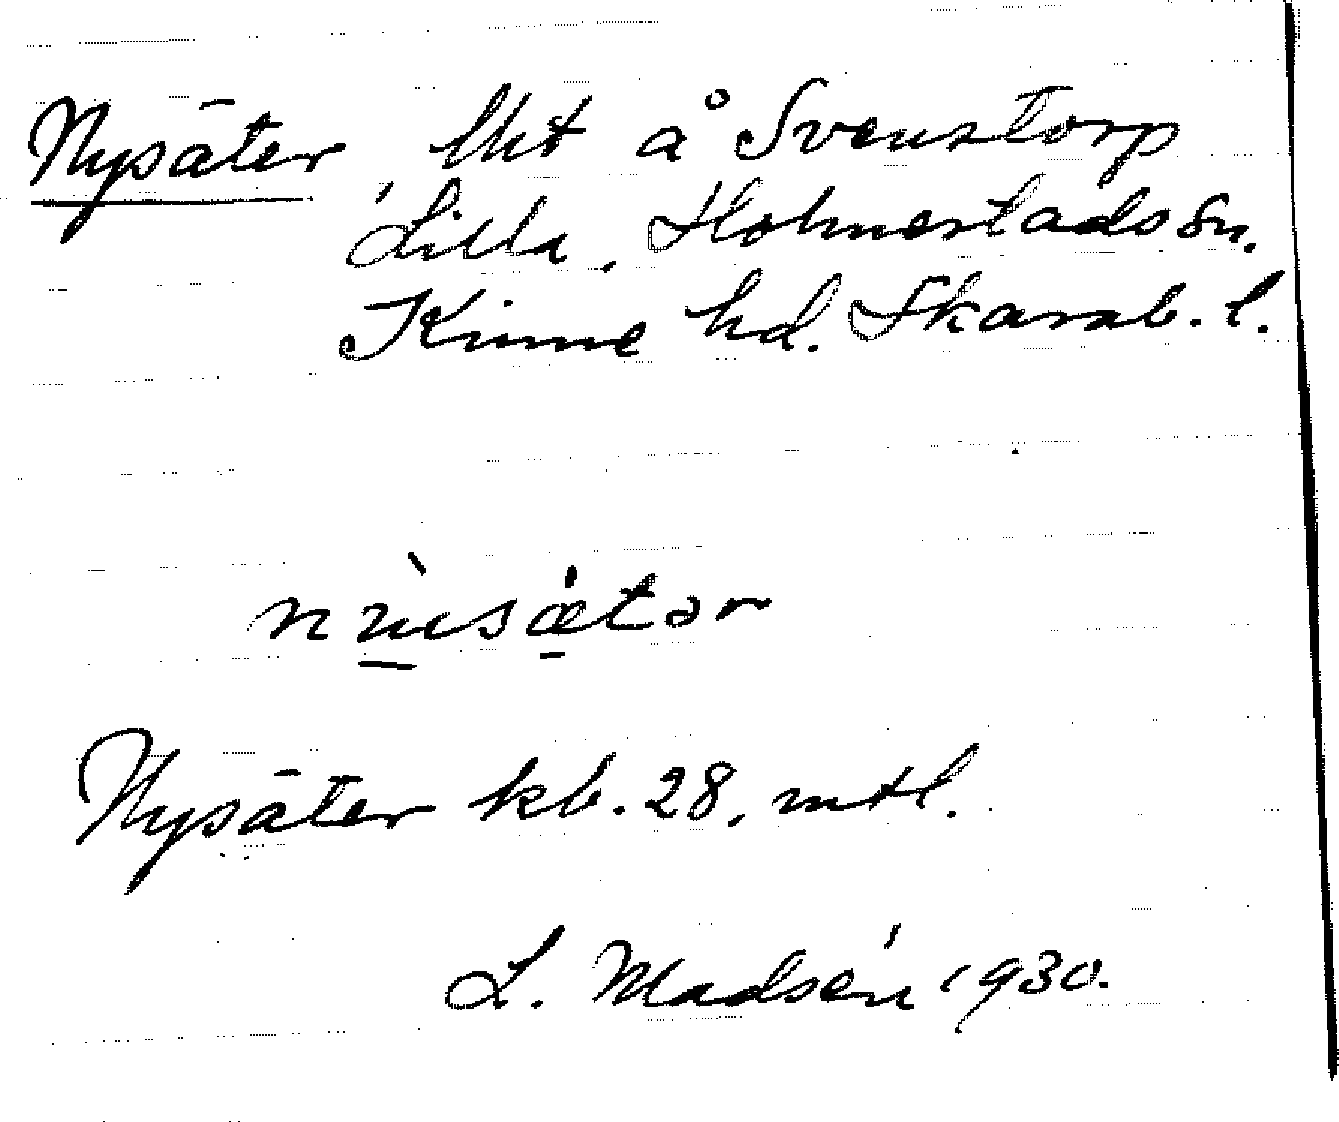 Nysäter, lht å Svenstorp
Lilla, Holmestads sn.
Kinne hd. Skarab. l.
nỳsǽtər
Nysäter kb. 28, mtl.
L. Madsén 1930.